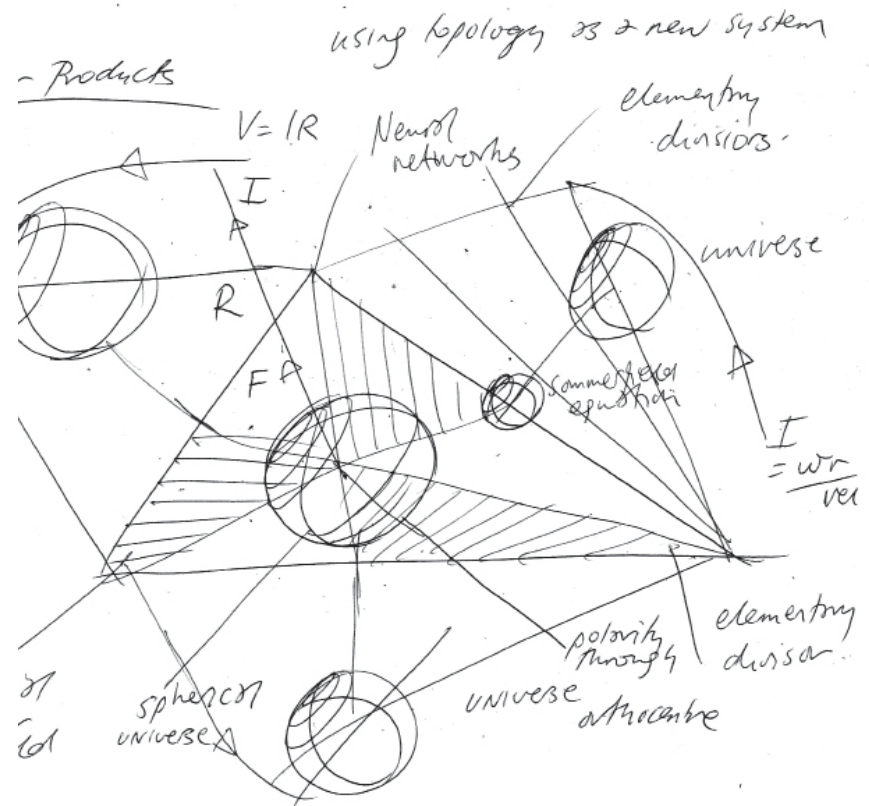 using topology as a new system
- Products
V = IR
Neural
networks
elementary
divisors.
I
universe
R
F
sommerfield
equation
I
= wr
vel
elementary
divisor.
polarity
through
orthocentre
universe
spherical
universe